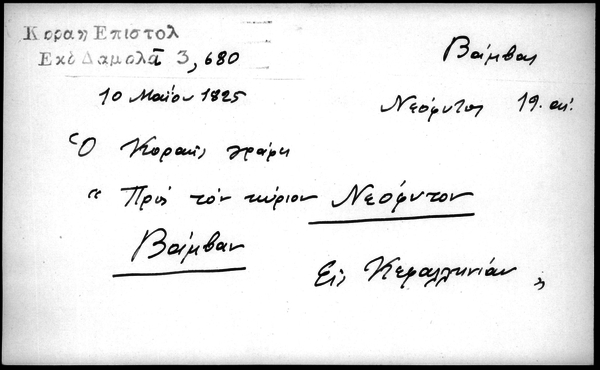 Κοραη Επιστολ
Εκδ Δαμαλᾶ 3, 680
Βάμβας
10 Μαΐου 1825
Νεόφυτος 19. αἰ.
Ὁ Κοραῆς γράφει
" Πρὸς τὸν κύριον Νεόφυτον
Βάμβαν
Εἰς Κεφαλληνίαν "